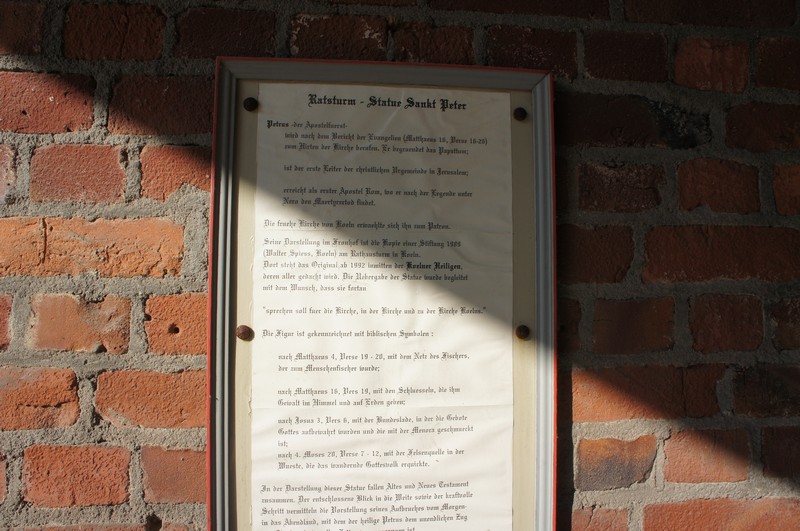 Ratsturm - Statue Sankt Peter
Petrus -der Apostelfuerst-
wird nach dem Bericht der Evangelien (Matthaeus 16, Verse 16-20)
zum Hirten der Kirche berufen. Er begruendet das Papsttum;
ist der erste Leiter der christlichen Urgemeinde in Jerusalem;
erreicht als erster Apostel Rom, wo er nach der Legende unter
Nero den Maertyrertod findet.
Die fruehe Kirche von Koeln erwaehlte sich ihn zum Patron.
Seine Darstellung im Fronhof ist die Kopie einer Stiftung 1989
(Walter Spiess, Koeln) am Rathausturm in Koeln.
Dort steht das Original ab 1992 inmitten der Koelner Heiligen,
deren aller gedacht wird. Die Uebergabe der Statue wurde begleitet
mit dem Wunsch, dass sie fortan
"sprechen soll fuer die Kirche, in der Kirche und zu der Kirche Koelns."
Die Figur ist gekennzeichnet mit biblischen Symbolen :
nach Matthaeus 4, Verse 19 - 20, mit dem Netz des Fischers,
der zum Menschenfischer wurde;
nach Matthaeus 16, Vers 19, mit den Schluesseln, die ihm
Gewalt im Himmel und auf Erden geben;
nach Josua 3, Vers 6, mit der Bundeslade, in der die Gebote
Gottes aufbewahrt wurden und die mit der Menora geschmueckt
ist;
nach 4. Moses 20, Verse 7 - 12, mit der Felsenquelle in der
Wueste, die das wandernde Gottesvolk erquickte. "
In der Darstellung dieser Statue fallen Altes und Neues Testament
zusammen. Der entschlossene Blick in die Weite sowie der kraftvolle
Schritt vermitteln die Vorstellung seines Aufbruches vom Morgen-
in das Abendland, mit dem der heilige Petrus dem unendlichen Zug